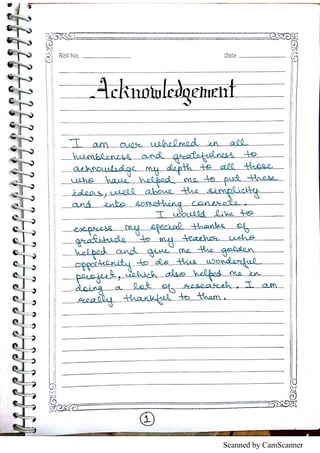 Roll No.
Date
Acknowledgement
I am over whelmed in all
humbleness and gratefulness to
acknowledge my depth to all those
who have helped me to put these
ideas, well above the simplicity
and into something concrete.
I would like to
express my special thanks of
gratitude to my teacher who
helped and gave me the golden
opportunity to do this wonderful
project, which also helped me in
doing a lot of research. I am
really thankful to them.
1
Scanned by CamScanner